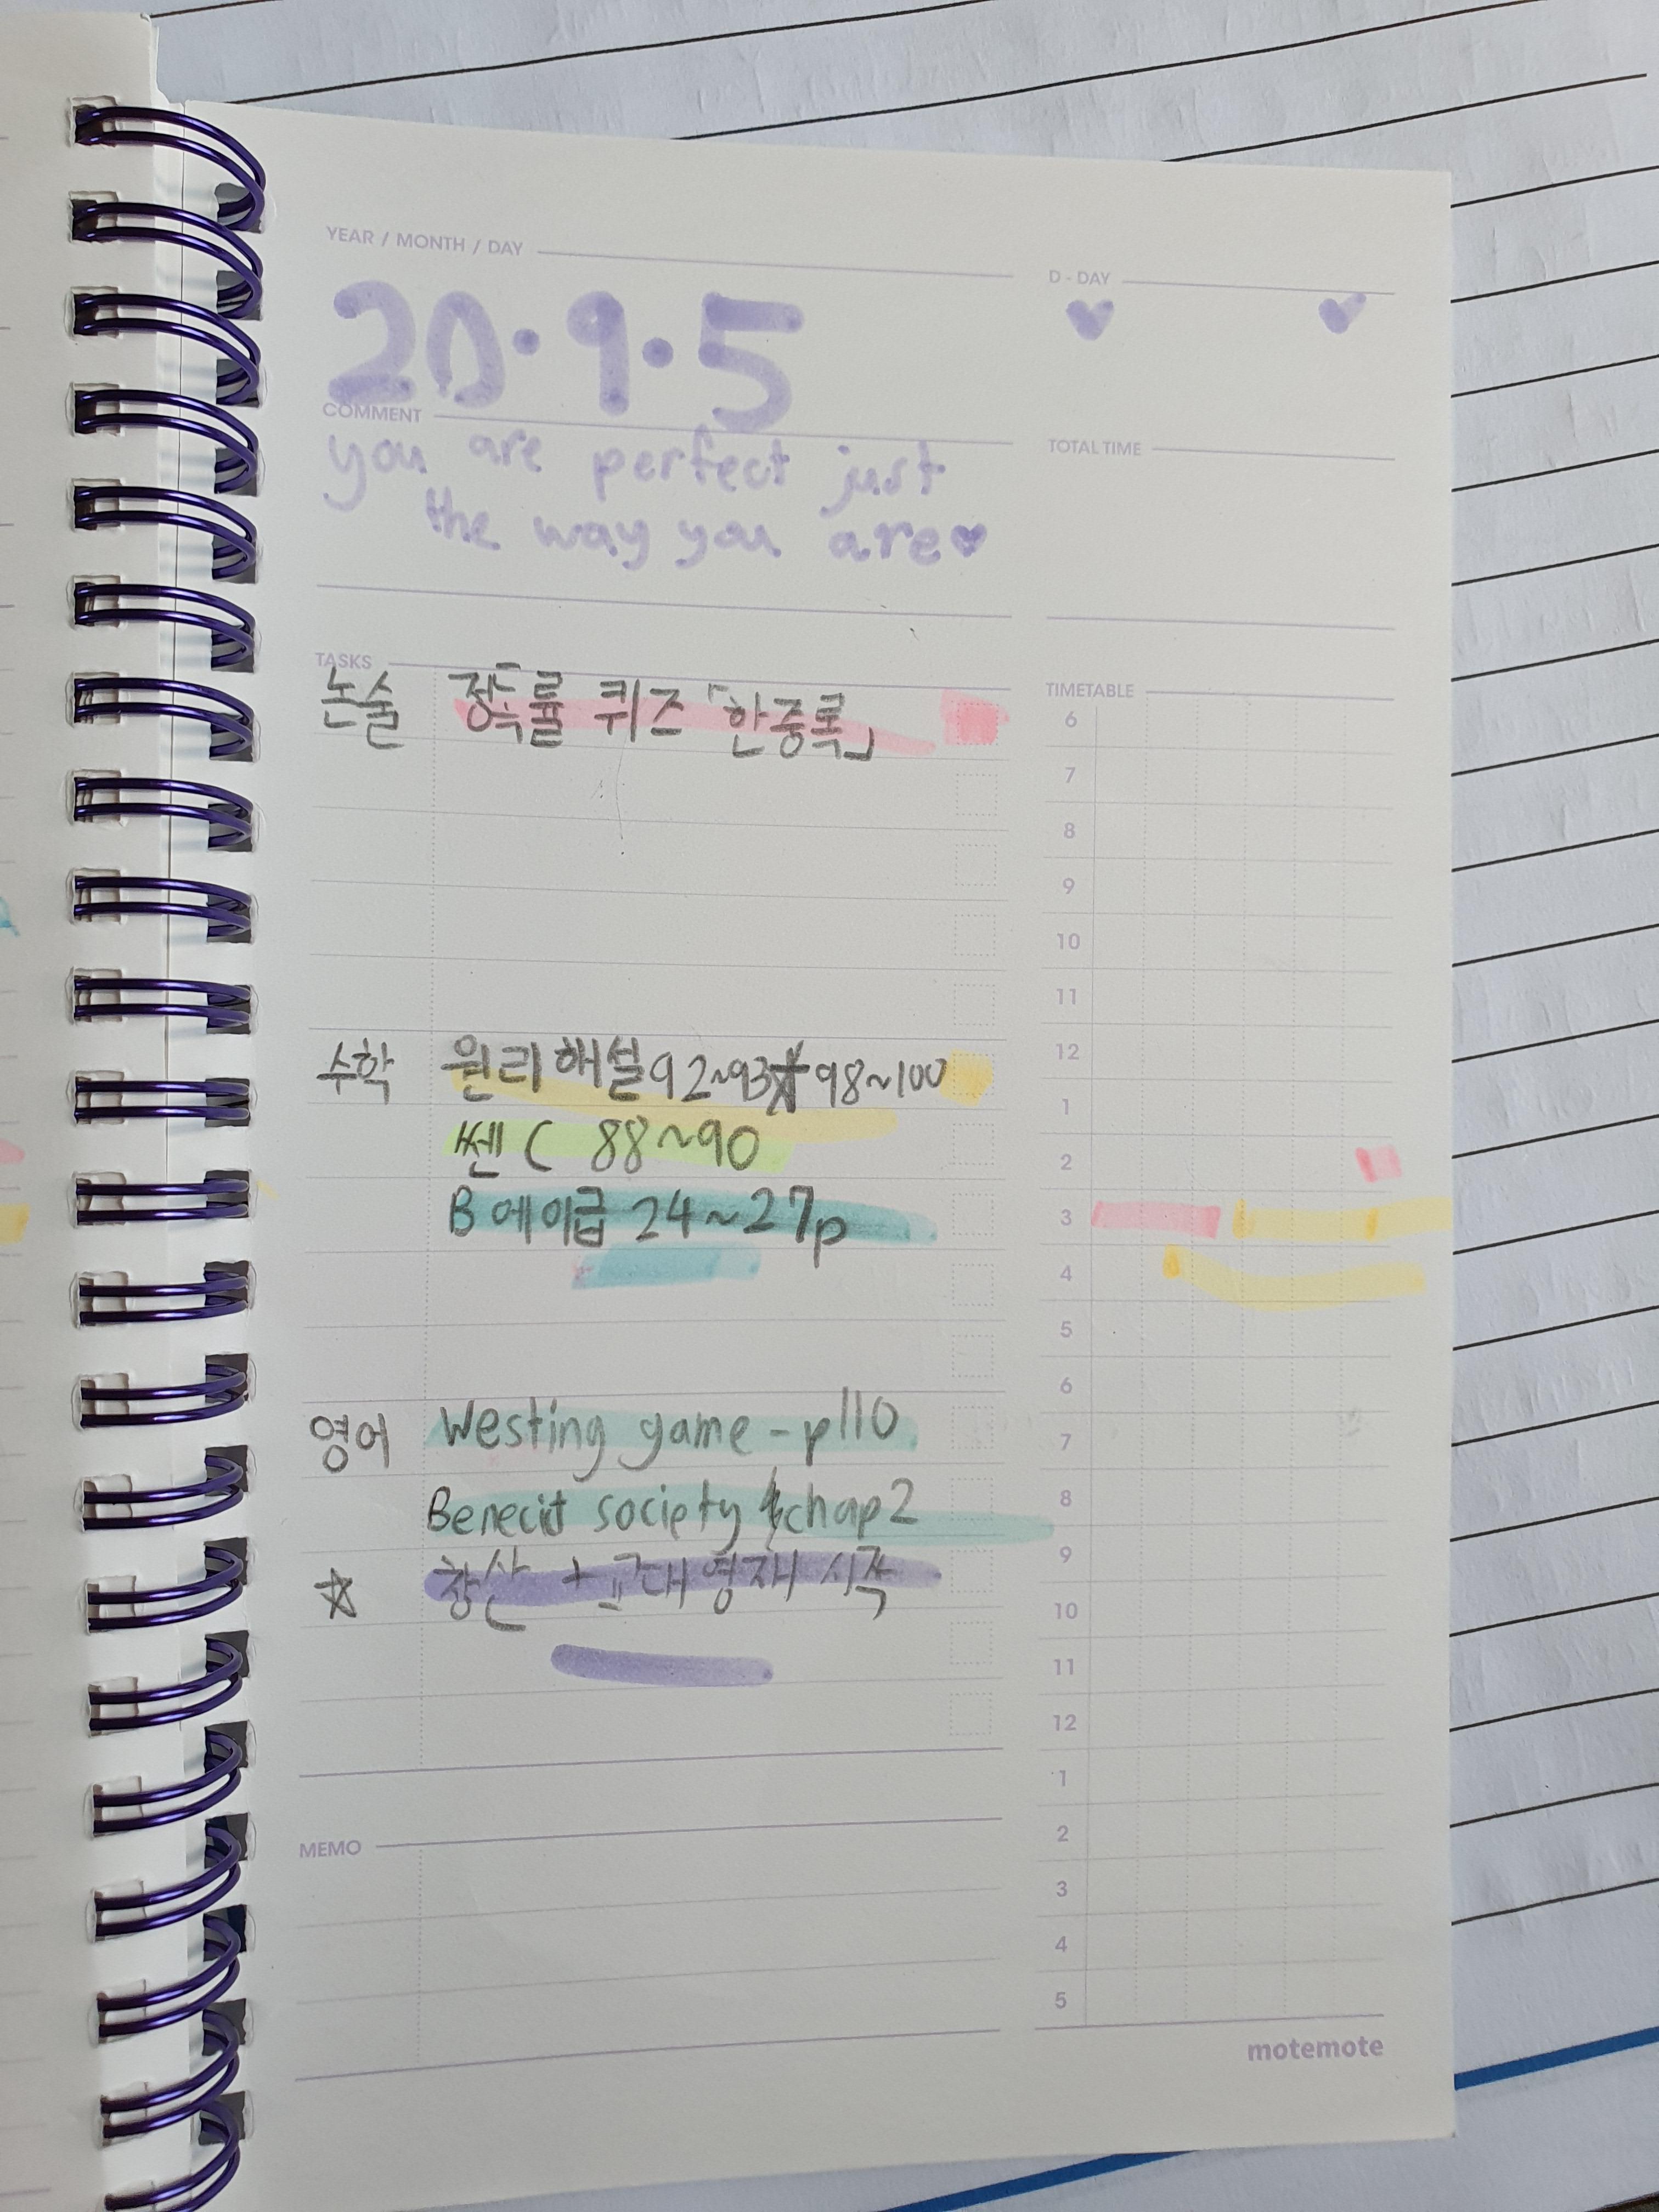 YEAR / MONTH / DAY
D - DAY
20·9·5
COMMENT
TOTAL TIME
you are perfect just
the way you are♥
TASKS
논술 퀴즈 「한중록」
TIMETABLE
6
7
8
9
10
11
수학 원리해설 92~93 98~100
12
1
쎈 C 88~90
2
B 에이급 24~27p
3
4
5
6
영어 Westing game - p110
7
society chap2
8
☆ 창산 + 고대영재 시작
9
10
11
12
1
MEMO
2
3
4
5
motemote